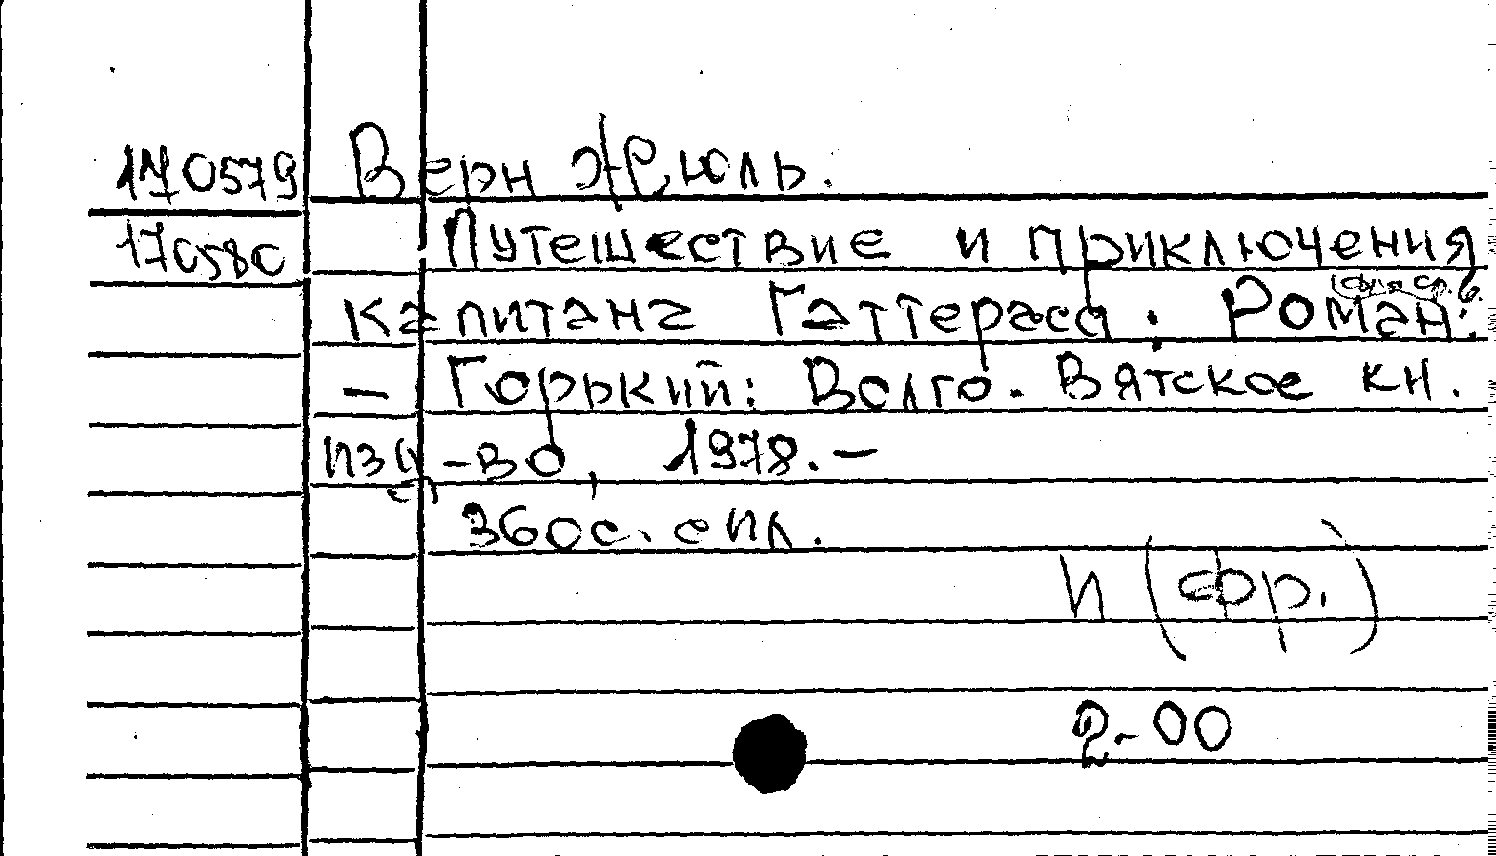 170579 Верн Жюль.
170580 Путешествие и приключения
капитана Гаттераса. Роман.
- Горький: Волго. Вятское кн.
изд-во, 1978. -
360с. с ил.
И (фр.)
2-00